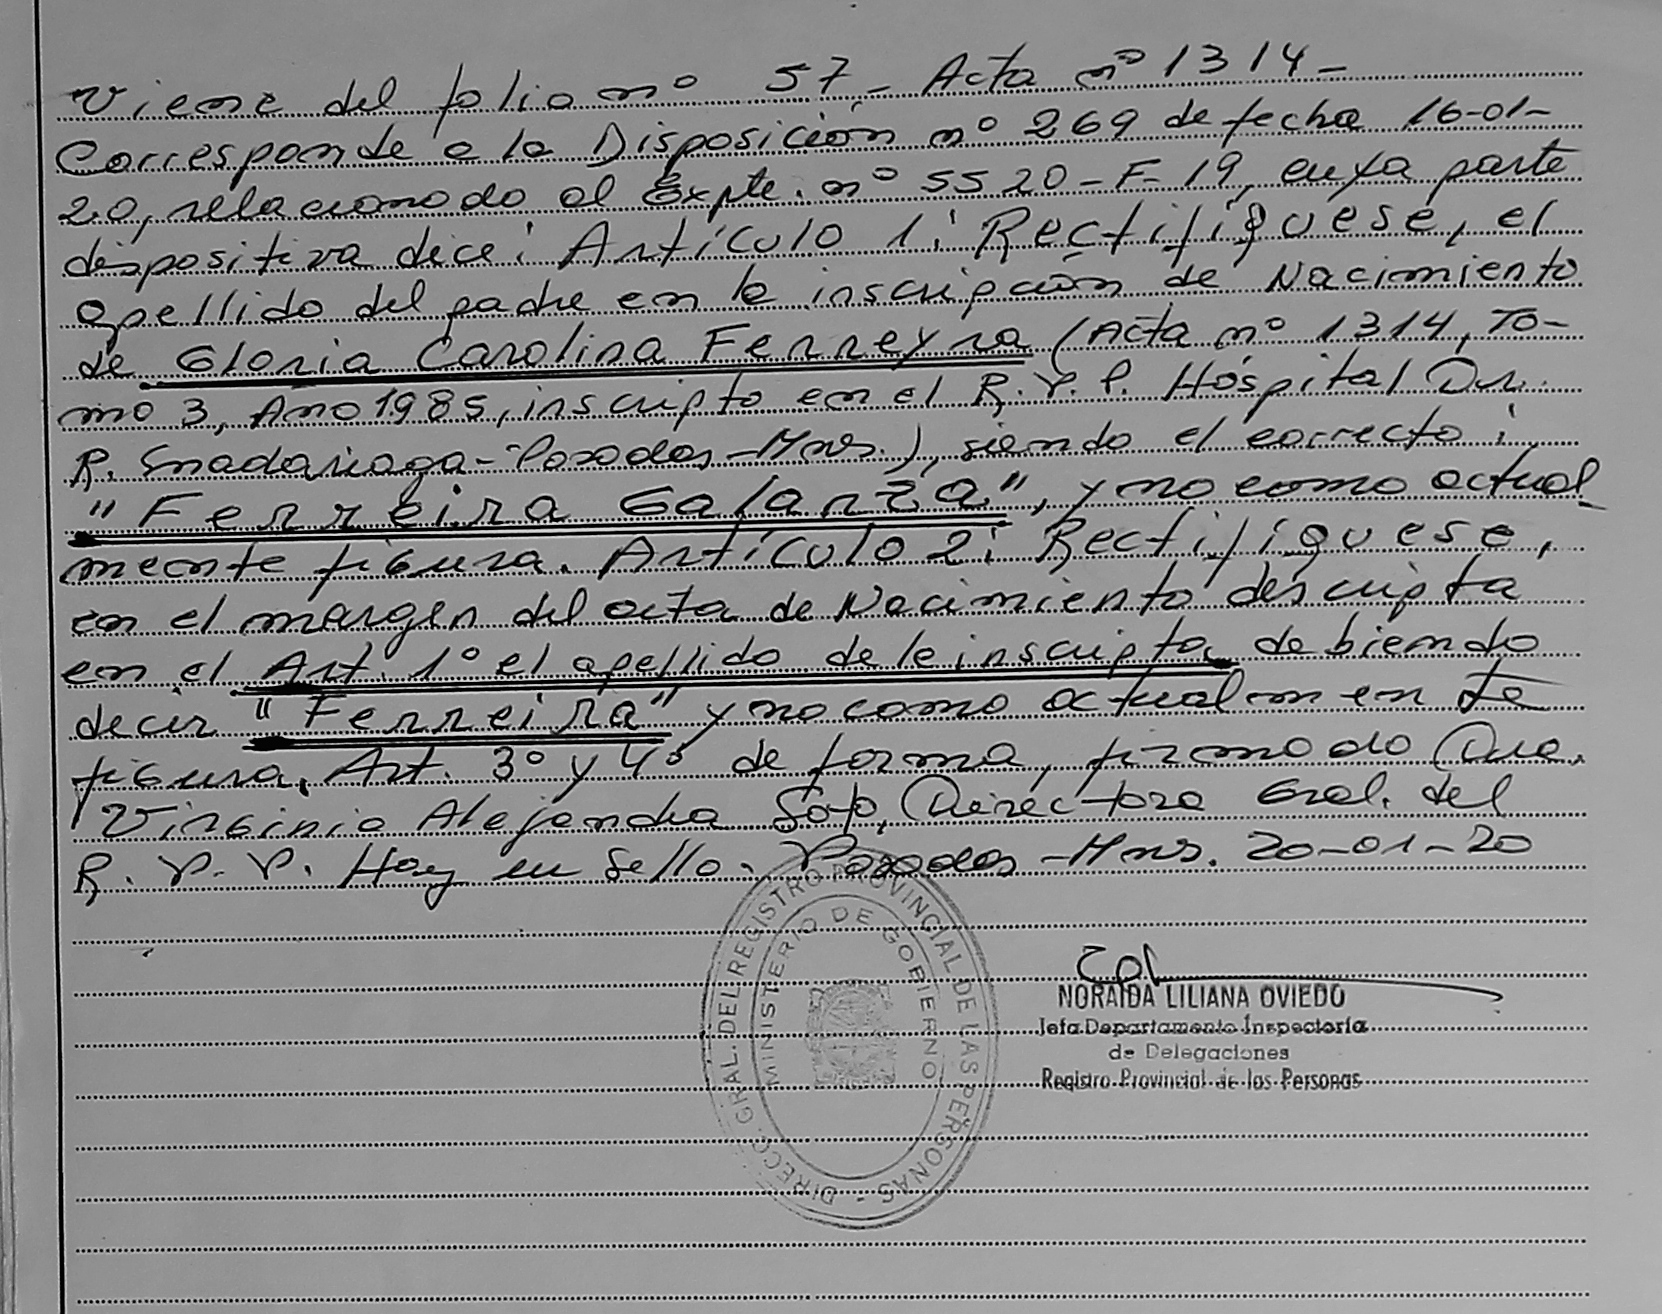 Viene del folio nº 57.- Acta nº 1314-
Corresponde a la Disposición nº 269 de fecha 16-01-
20, relacionado al Expte. nº 5520-F-19, cuya parte
dispositiva dice: Artículo 1: Rectifíquese, el
apellido del padre en la inscripción de Nacimiento
de Gloria Carolina Ferreyra (Acta nº 1314, To-
mo 3, Año 1985, inscripto en el R.P.P. Hospital Dr.
R. Madariaga-Posadas-Mnes.), siendo el correcto:
"Ferreira Galarza", y no como actual-
mente figura. Artículo 2: Rectifíquese,
en el margen del acta de Nacimiento descripta
en el Art. 1º el apellido de la inscripta debiendo
decir "Ferreira" y no como actualmente
figura. Art. 3º y 4º de forma, firmado Dra.
Virginia Alejandra Soto, Directora Gral. del
R.P.P. Hay un Sello. Posadas-Mnes. 20-01-20
DIRECC. GRAL. DEL REGISTRO PROVINCIAL DE LAS PERSONAS -
MINISTERIO DE GOBIERNO
NORAIDA LILIANA OVIEDO
Jefa Departamento Inspectoría
de Delegaciones
Registro Provincial de las Personas